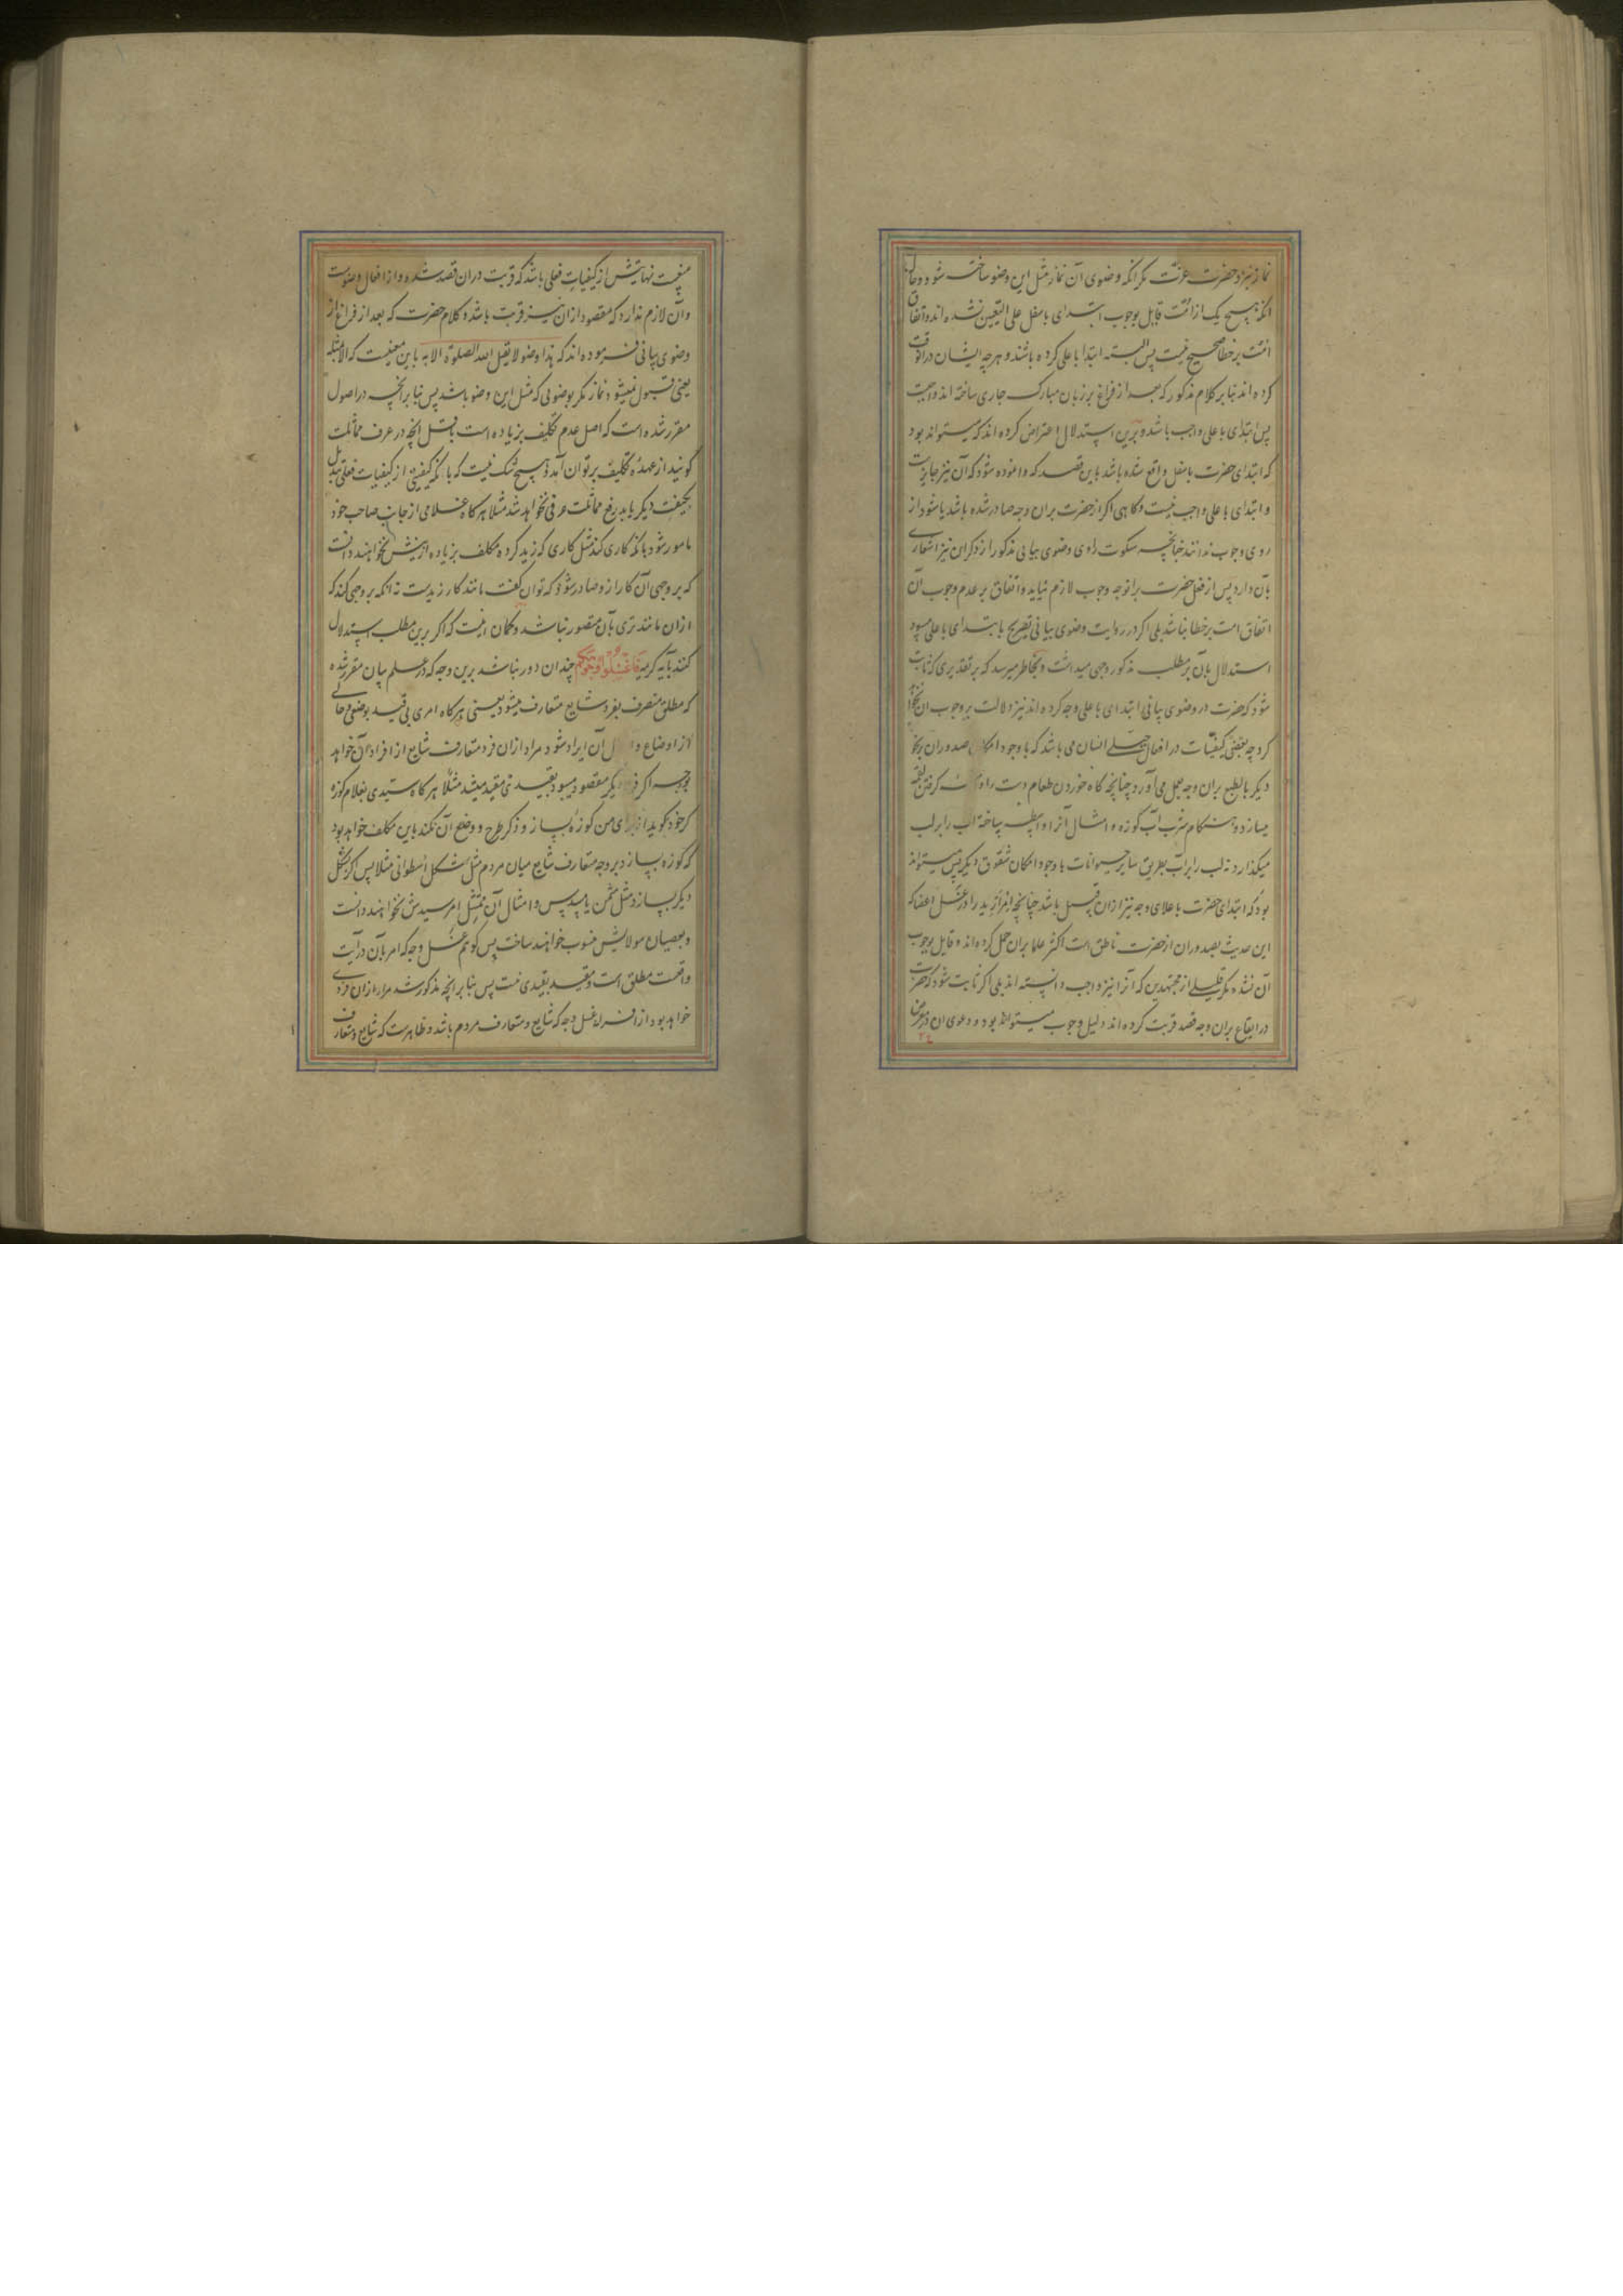 نماز نزد حضرت عزت مگر آنکه وضوی آن نماز مثل این وضو ساخته شود و حال
آنکه هیچ یک از امت قایل بوجوب ابتدای باسفل علی التعیین نشده اند و اتفاق
امت بر خطا صحیح نیست پس البته ابتدا باعلی کرده باشند و هرچه ایشان در آنوقت
کرده اند بنابر کلام مذکور که بعد از فراغ بر زبان مبارک جاری ساخته اند واجبست
پس ابتدای باعلی واجب باشد و برین استدلال اعتراض کرده اند که میتواند بود
که ابتدای حضرت باسفل واقع شده باشد باین قصد که وانموده شود که آن نیز جایزست
و ابتدای باعلی واجب نیست و گاهی اگر از حضرت بران وجه صادر شده باشد یا شود از
روی وجوب ندانند چنانچه سکوت راوی وضوی بیانی مذکور از ذکر این نیز اشعاری
بآن دارد پس از فعل حضرت برانوجه وجوب لازم نیاید و اتفاق بر عدم وجوب آن
اتفاق امت بر خطا نباشد بلی اگر در روایت وضوی بیانی تصریح بابتدای باعلی میبود
استدلال بآن بر مطلب مذکور وجهی میداشت و بخاطر میرسد که بر تقدیری که ثابت
شود که حضرت در وضوی بیانی ابتدای باعلی وجه کرده اند نیز دلالت بر وجوب آن نخواهد
کرد چه بعضی کیفیات در افعال جبلی انسان می باشد که با وجود امکان صدور آن بر نحو
دیگر بالطبع بران وجه بعمل می آورد چنانچه گاه خوردن طعام دست را آلت گرفتن لقمه
میسازد و هنگام شرب آب کوزه و امثال آنرا واسطه ساخته آب را بر لب
میگذارد نه لب را بر آب بطریق سایر حیوانات با وجود امکان شقوق دیگر پس میتواند
بود که ابتدای حضرت باعلای وجه نیز ازان قبیل باشد چنانچه امرار ید را در غسل اعضا که
این حدیث بصدور آن از حضرت ناطق است اکثر علما بران حمل کرده اند و قایل بوجوب
آن نشده مگر قلیلی از مجتهدین که آنرا نیز واجب دانسته اند بلی اگر ثابت شود که حضرت
در ایقاع بران وجه قصد قربت کرده اند دلیل وجوب میتواند بود و دعوی آن در معرض
۲۴
منعست نهایتش از کیفیات فعلی باشد که قربت دران قصد شده و از افعال وضوست
و آن لازم ندارد که مقصود ازان نیز قربت باشد و کلام حضرت که بعد از فراغ از
وضوی بیانی فرموده اند که هذا وضوء لا یقبل الله الصلوة الا به باین معنیست که الا بمثله
یعنی قبول نمیشود نماز مگر بوضوئی که مثل این وضو باشد پس بنابر آنچه در اصول
مقرر شده است که اصل عدم تکلیف بزیاده است باقل آنچه در عرف مماثلت
گویند از عهده تکلیف بر توان آمد و هیچ شک نیست که بآنکه کیفیتی از کیفیات فعلی تبدیل
بکیفیت دیگر یابد رفع مماثلت عرفی نخواهد شد مثلا هرگاه غلامی از جانب صاحب خود
مامور شود بآنکه کاری کند مثل کاری که زید کرده مکلف بزیاده ازینش نخواهند دانست
که بر وجهی آن کار ازو صادر شود که توان گفت مانند کار زیدست نه آنکه بر وجهی کند که
ازان مانندتری بآن متصور نباشد و گمان اینست که اگر برین مطلب استدلال
کنند بآیه کریمه فَاغْسِلُوا وُجُوهَکُمْ چندان دور نباشد برین وجه که در علم بیان مقرر شده
که مطلق منصرف بفرد شایع متعارف میشود یعنی هرگاه امری بی قید بوضعی و حالی
از اوضاع و آن ایراد شود مراد ازان فرد متعارف شایع از افراد آن خواهد
بود چه اگر فرد دیگر مقصود میبود بقیدی مقید میشد مثلا هرگاه سیدی بغلام کوزه
گر خود گوید از برای من کوزه بساز و ذکر طرح و وضع آن نکند باین مکلف خواهد بود
که کوزه بسازد بر وجه متعارف شایع میان مردم مثل شکل اسطوانی مثلا پس اگر بشکل
دیگر بسازد مثل مثمن یا مسدس و امثال آن ممتثل امر سیدش نخواهند دانست
و بعصیان مولایش منسوب خواهند ساخت پس گویم غسل وجه که امر بآن در آیت
واقعست مطلق است و مقید بقیدی نیست پس بنابر آنچه مذکور شد مراد ازان فردی
خواهد بود از افراد غسل وجه که شایع و متعارف مردم باشد و ظاهرست که شایع و متعارف